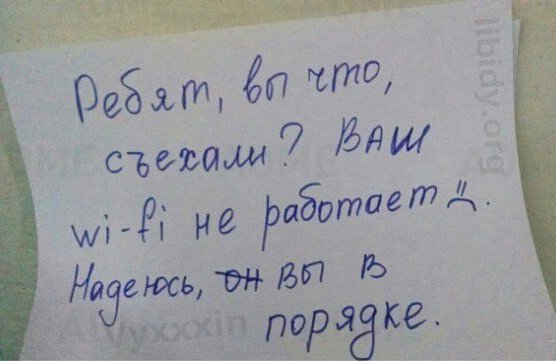 Ребят, вы что,
съехали? Ваш
wi-fi не работает :(.
Надеюсь, он вы в
порядке.
libidy.org